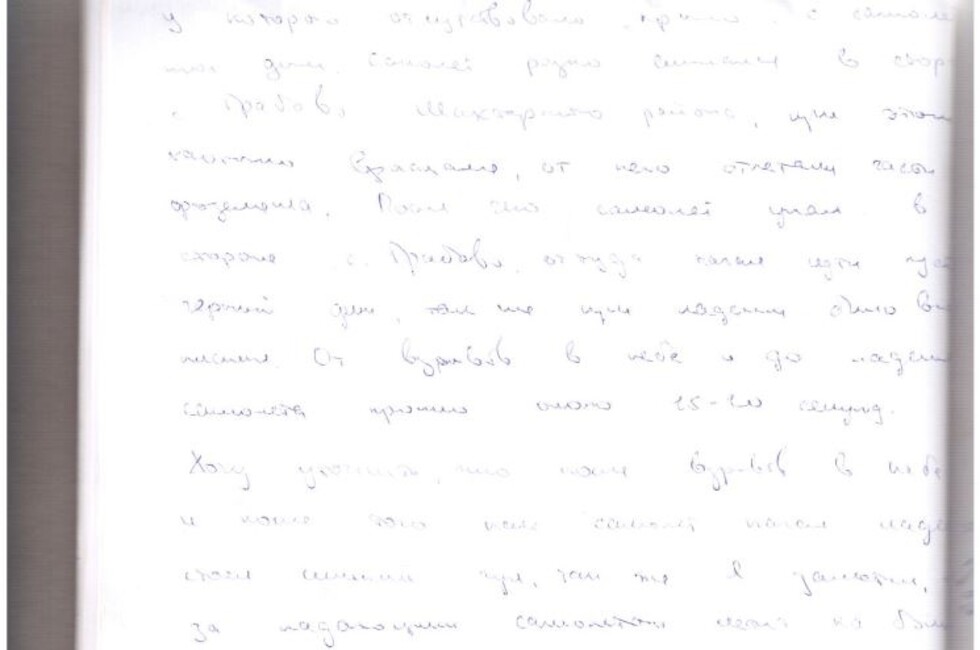 у которого отсутствовало крыло. с самоле
дым. Самолет резко в стор
с. Грабово Шахтерского района, при этом
хаотично вращался, от него отлетали части
фюзеляжа. После чего самолет упал в
стороне с. Грабово, откуда начал идти гус
черный дым, так же при падении было
От взрывов в небе и до падени
самолета прошло около 15-20 секунд.
Хочу уточнить, что после взрывов в небе
и после того как самолет начал пада
стоял сильный гул, так же я заметил,
за падающим самолетом